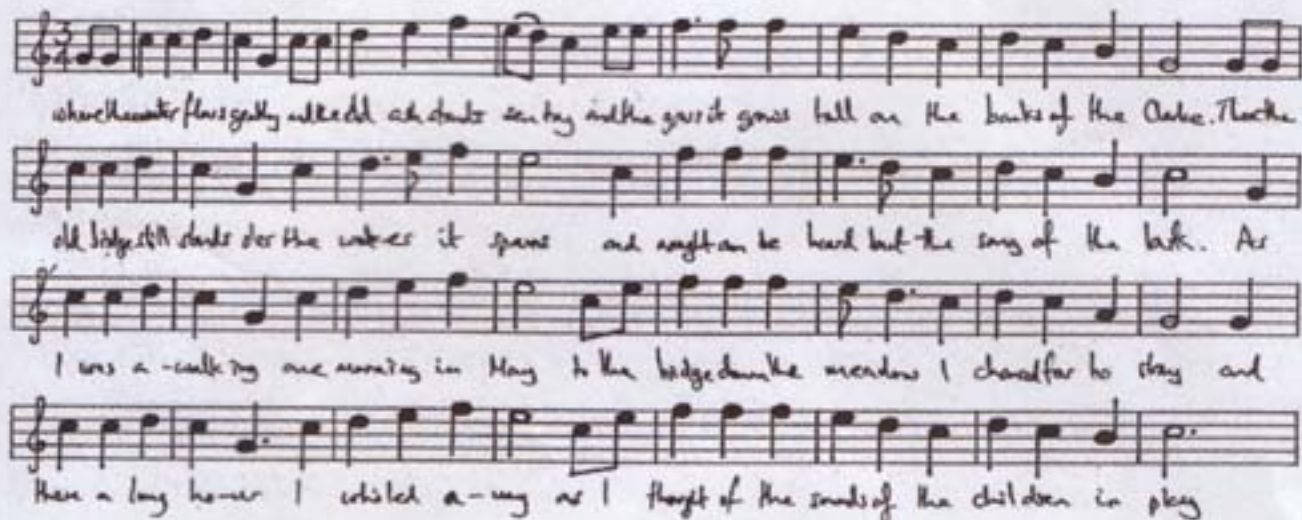 where the water flows gently and the old ash stands sentry and the grass it grows tall on the banks of the There the
old bridge still stands o'er the waters it spans and nought can be heard but the song of the lark. As
I was a-walking one morning in May to the bridge down the meadow I chanced for to stray and
there a long hour I whiled a-way as I thought of the sounds of the children in play